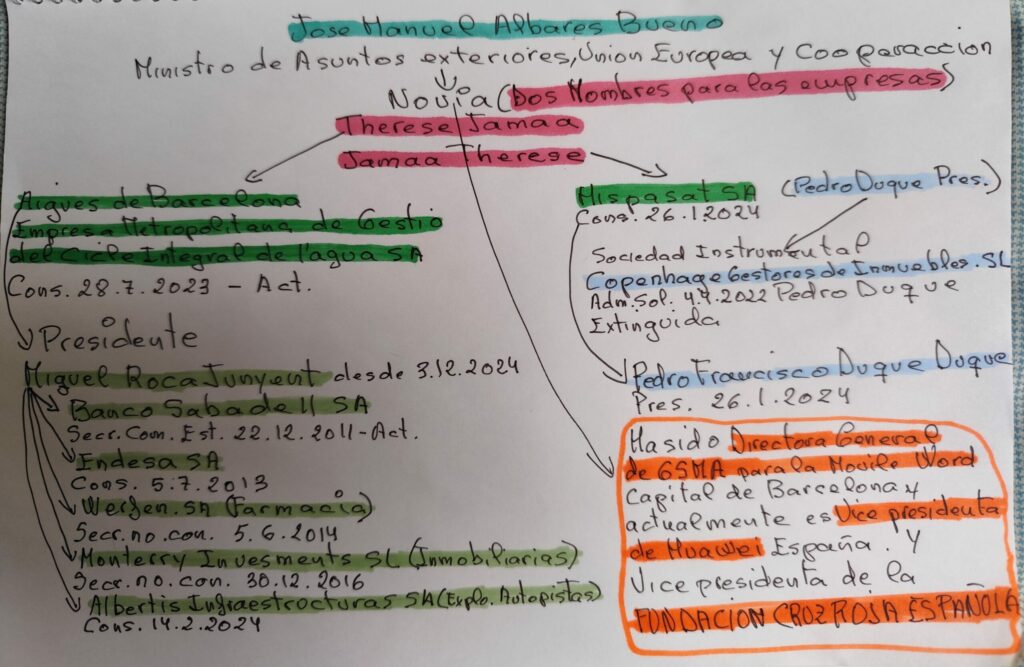 Jose Manuel Albares Bueno
Ministro de Asuntos exteriores, Union Europea y Cooparaccion
Novia (Dos Nombres para las empresas)
Therese Jamaa
Jamaa Therese
Aigues de Barcelona
Empresa Metropolitana de Gestio
del Cicle Integral de l'agua SA
Cons. 28.7.2023 - Act.
Presidente
Miguel Roca Junyent desde 3.12.2024
Banco Sabadell SA
Secr. Con. Est. 22.12.2011-Act.
Endesa SA
Cons. 5.7.2013
Werfen.SA (Farmacia)
Secr.no.con. 5.6.2014
Monterry Invesments SL (Inmobiliarias)
Secr.no.con. 30.12.2016
Albertis Infraestructuras SA (Explo. Autopistas)
Cons. 14.2.2024
Hispasat SA (Pedro Duque Pres.)
Cons. 26.1.2024
Sociedad Instrumental
Copenhage Gestores de Inmuebles.SL
Adm.Sol. 4.4.2022 Pedro Duque
Extinguida
Pedro Francisco Duque Duque
Pres. 26.1.2024
Ha sido Directora General
de GSMA para la Movile Word
Capital de Barcelona y
actualmente es Vice presidenta
de Huawei España. Y
Vice presidenta de la
FUNDACION CROZ ROSA ESPAÑOLA